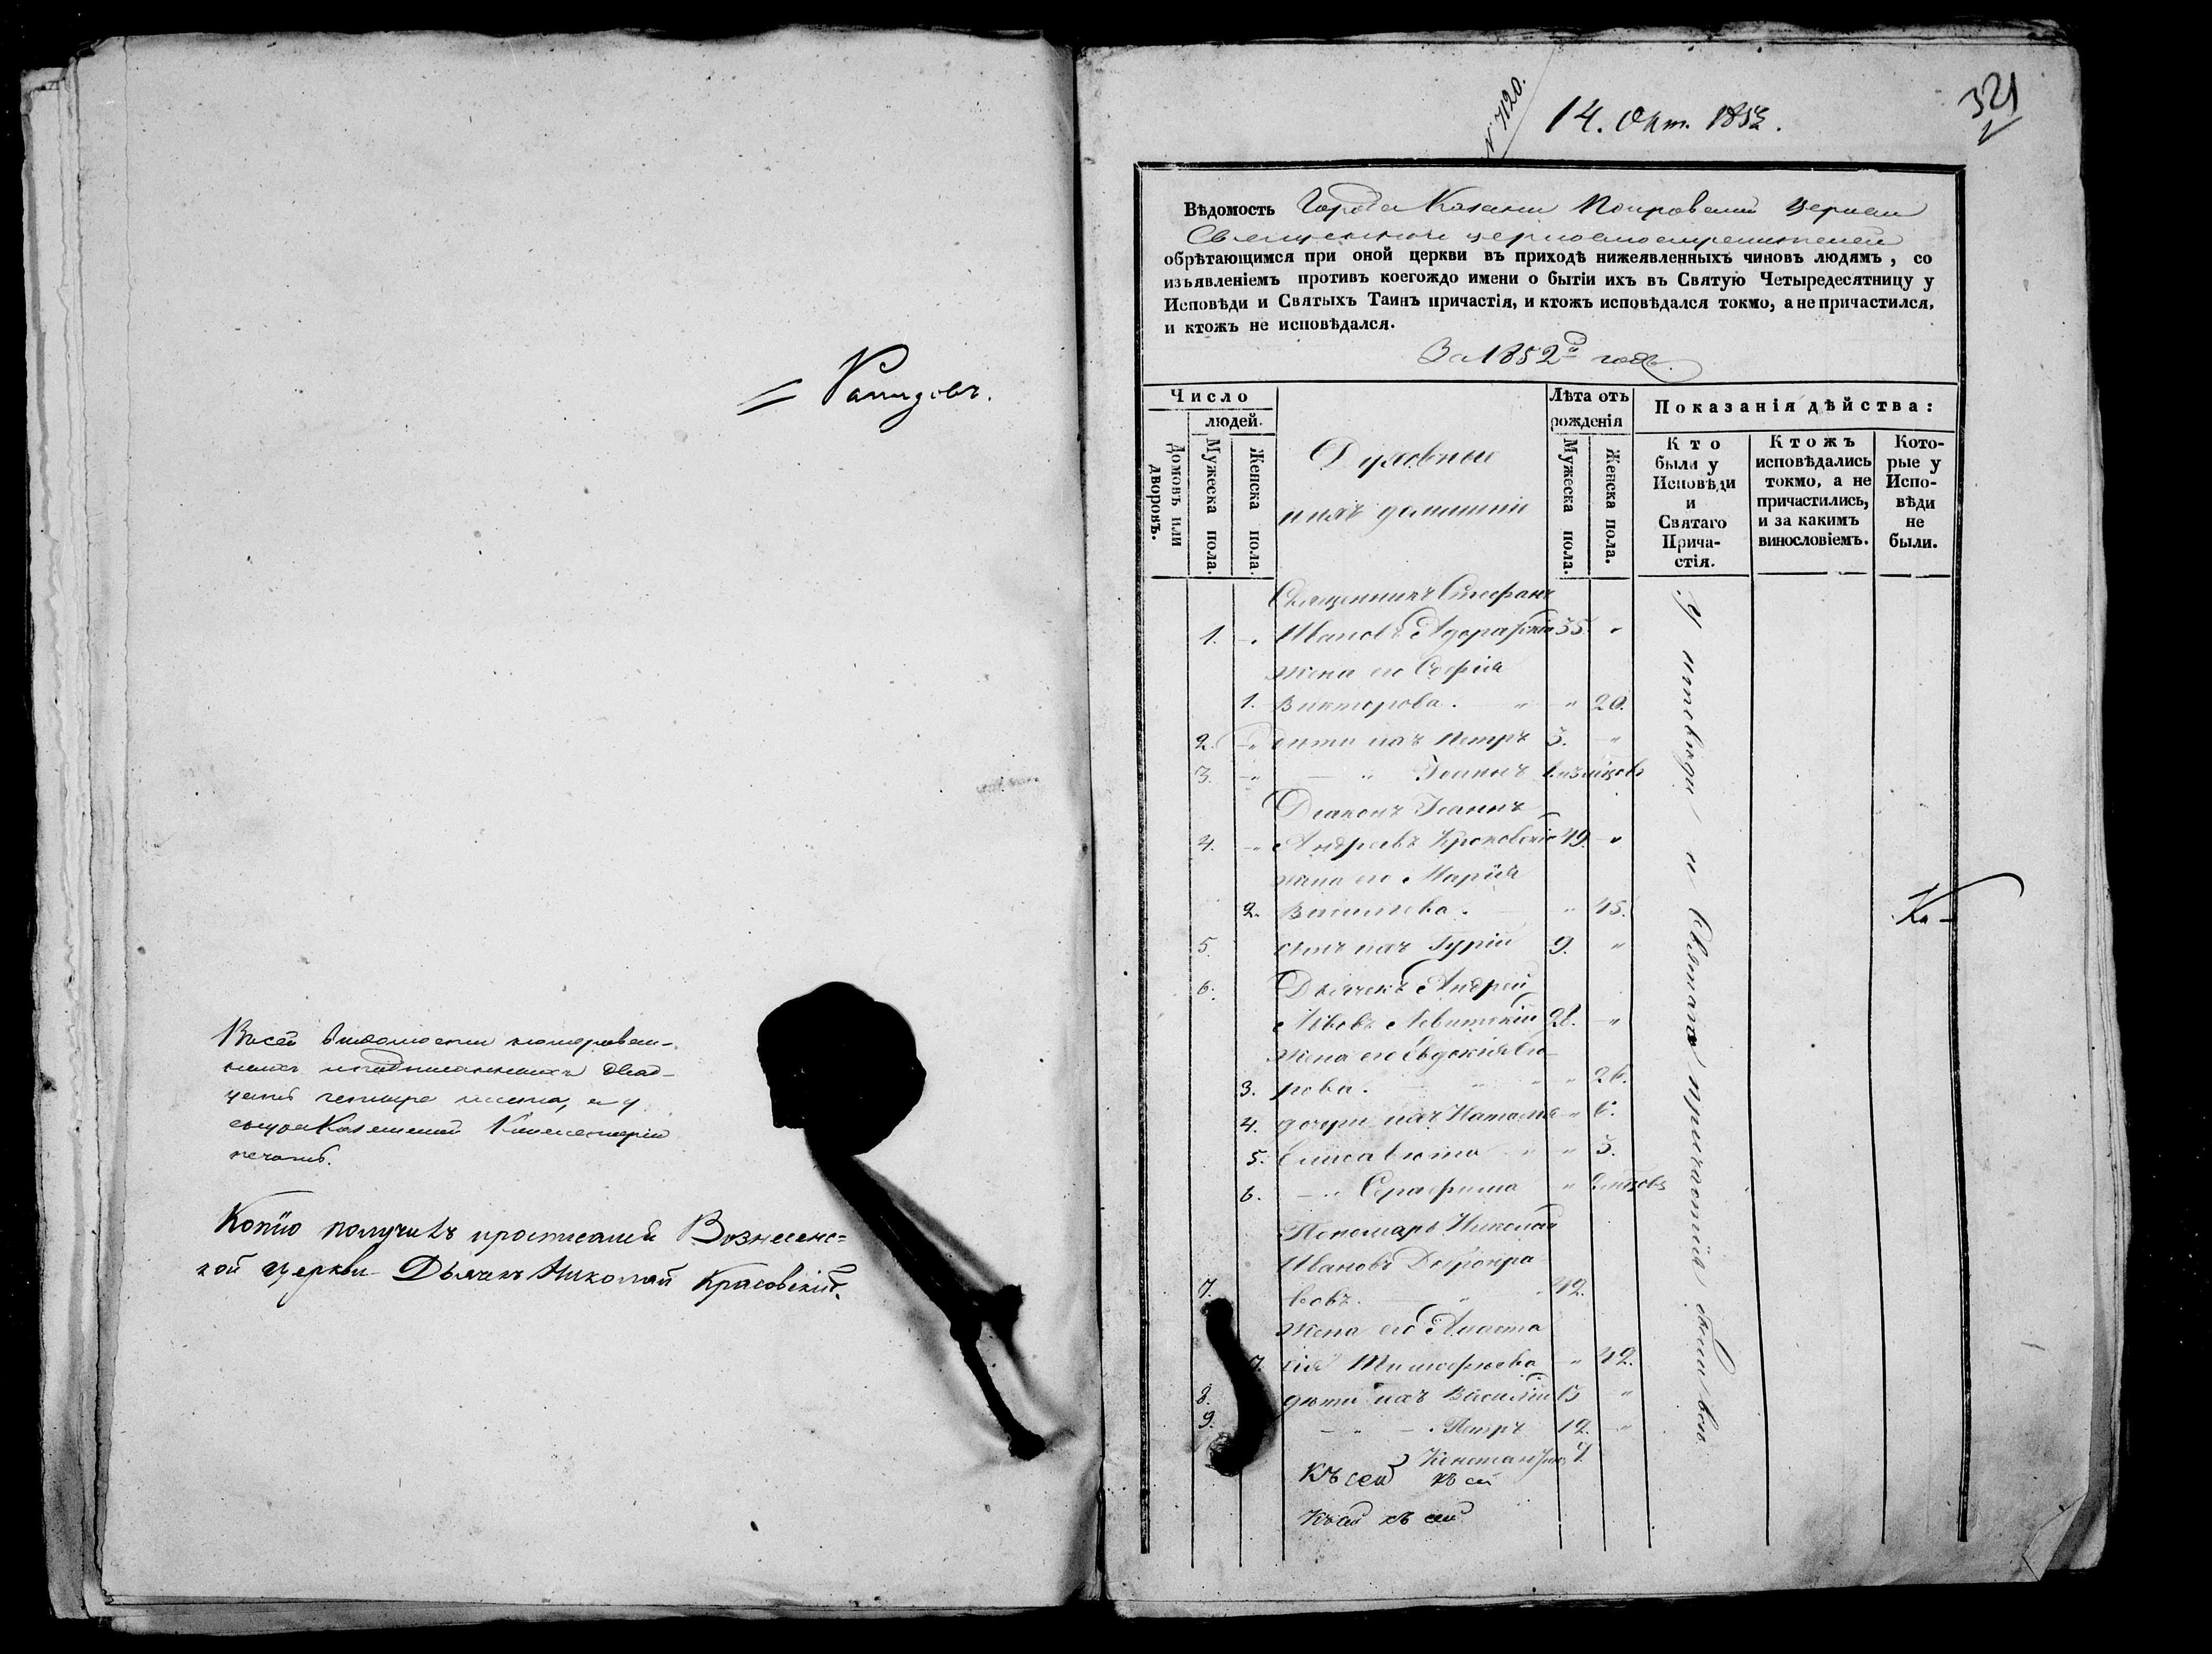 Канцеля
Въ сей
двад-
цать четыре листа, и у
Казанской Консисторіи
печать.
Копію получилъ Вознесенс=
кой церкви Дьячекъ Николай Красовскій.
№ 7120.
14. Окт. 1853.
321
Вѣдомость Города Казани Покровской Церкви
обрѣтающимся при оной церкви въ приходѣ нижеявленныхъ чиновъ людямъ, со
изъявленіемъ противъ коегождо имени о бытіи ихъ въ Святую Четыредесятницу у
Исповѣди и Святыхъ Таинъ причастія, и ктожъ исповѣдался токмо, а не причастился,
и ктожъ не исповѣдался.
За 1852й годъ.
Число
людей.
Домовъ или дворовъ.
Мужеска пола.
Женска пола.
Духовные
и ихъ домашніе
Лѣта отъ
рожденія
Мужеска пола.
Женска пола.
Показанія дѣйства:
Кто
были у
Исповѣди
и
Святаго
Прича-
стія.
Ктожъ
исповѣдались
токмо, а не
причастились,
и за какимъ
винословіемъ.
Кото-
рые у
Испо-
вѣди
не
были.
Священникъ Стефанъ
1. Ивановъ Адоратскій 35. "
жена его Софія
1. Викторова. " " 20.
2. " дѣти ихъ Петръ 3. "
3. " " Іоаннъ
Діаконъ Іоаннъ
4. " Андреевъ Кроковскій 49. "
жена его Марія
2. Васильева. " 45.
5. сынъ ихъ Гурій 9. "
6. Дьячекъ Андрей
Львовъ Левитскій 28. "
жена его Евдокія
3. рова. " " " 26.
4. дочери ихъ Наталья " 6.
5. Елисавета " " 3.
6. " Серафима "
Пономарь Николай
Ивановъ Добронра
7. вовъ. " " 42.
жена его Анаста
7. сія Тимофеева " 42.
8. дѣти ихъ Василій 15 "
9. " Петръ 12. "
Константинъ 7.
Къ сей къ сей
Къ сей къ сей
У исповѣди и Святаго причастія были всѣ.
Ка-